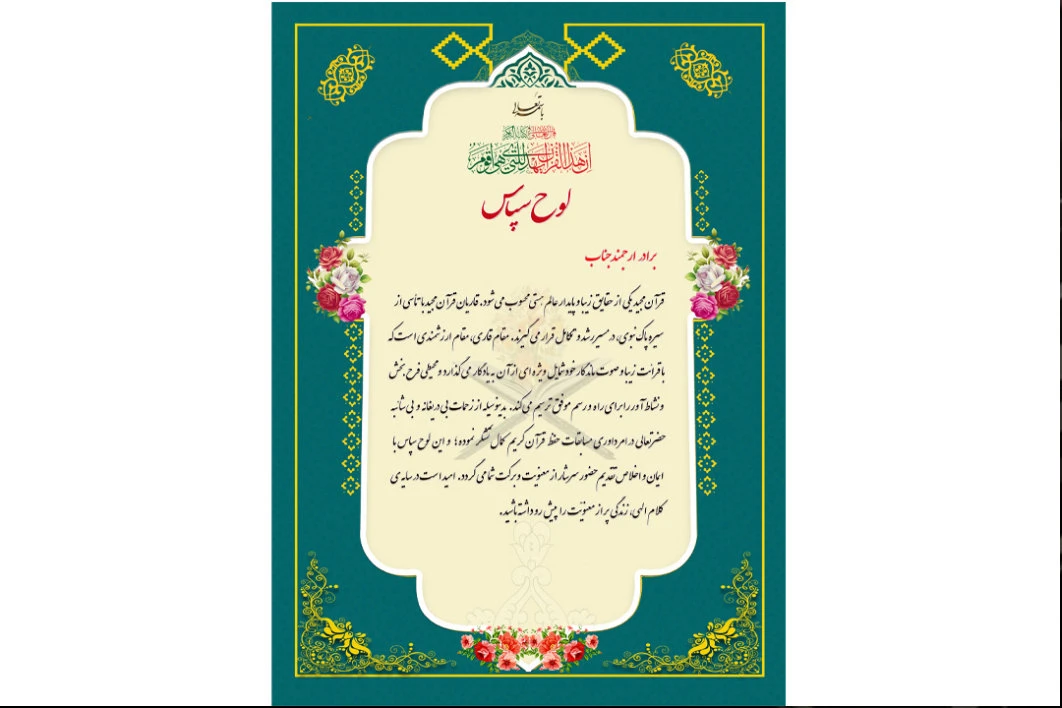 باسمه تعالی
قال الله تعالی فی کتابه الکریم
إنّ هذا القرآن یهدی للتی هی أقوم
لوح سپاس
برادر ارجمند جناب
قرآن مجید یکی از حقایق زیبا و پایدار عالم هستی محسوب می شود. قاریان قرآن مجید با تأسی از
سیره پاک نبوی، در مسیر رشد و تکامل قرار می گیرند. مقام قاری، مقام ارزشمندی است که
با قرائت زیبا و صوت ماندگار خود شمایل ویژه ای از آن به یادگار می گذارد و محیطی فرح بخش
و نشاط آور را برای راه و رسم موفق ترسیم می کند. بدینوسیله از زحمات بی دریغانه و بی شائبه
حضرتعالی در امر داوری مسابقات حفظ قرآن کریم کمال تشکر نموده؛ و این لوح سپاس با
ایمان و اخلاص تقدیم حضور سرشار از معنویت و برکت شما می گردد. امید است در سایه ی
کلام الهی، زندگی پر از معنویّت را پیش رو داشته باشید.